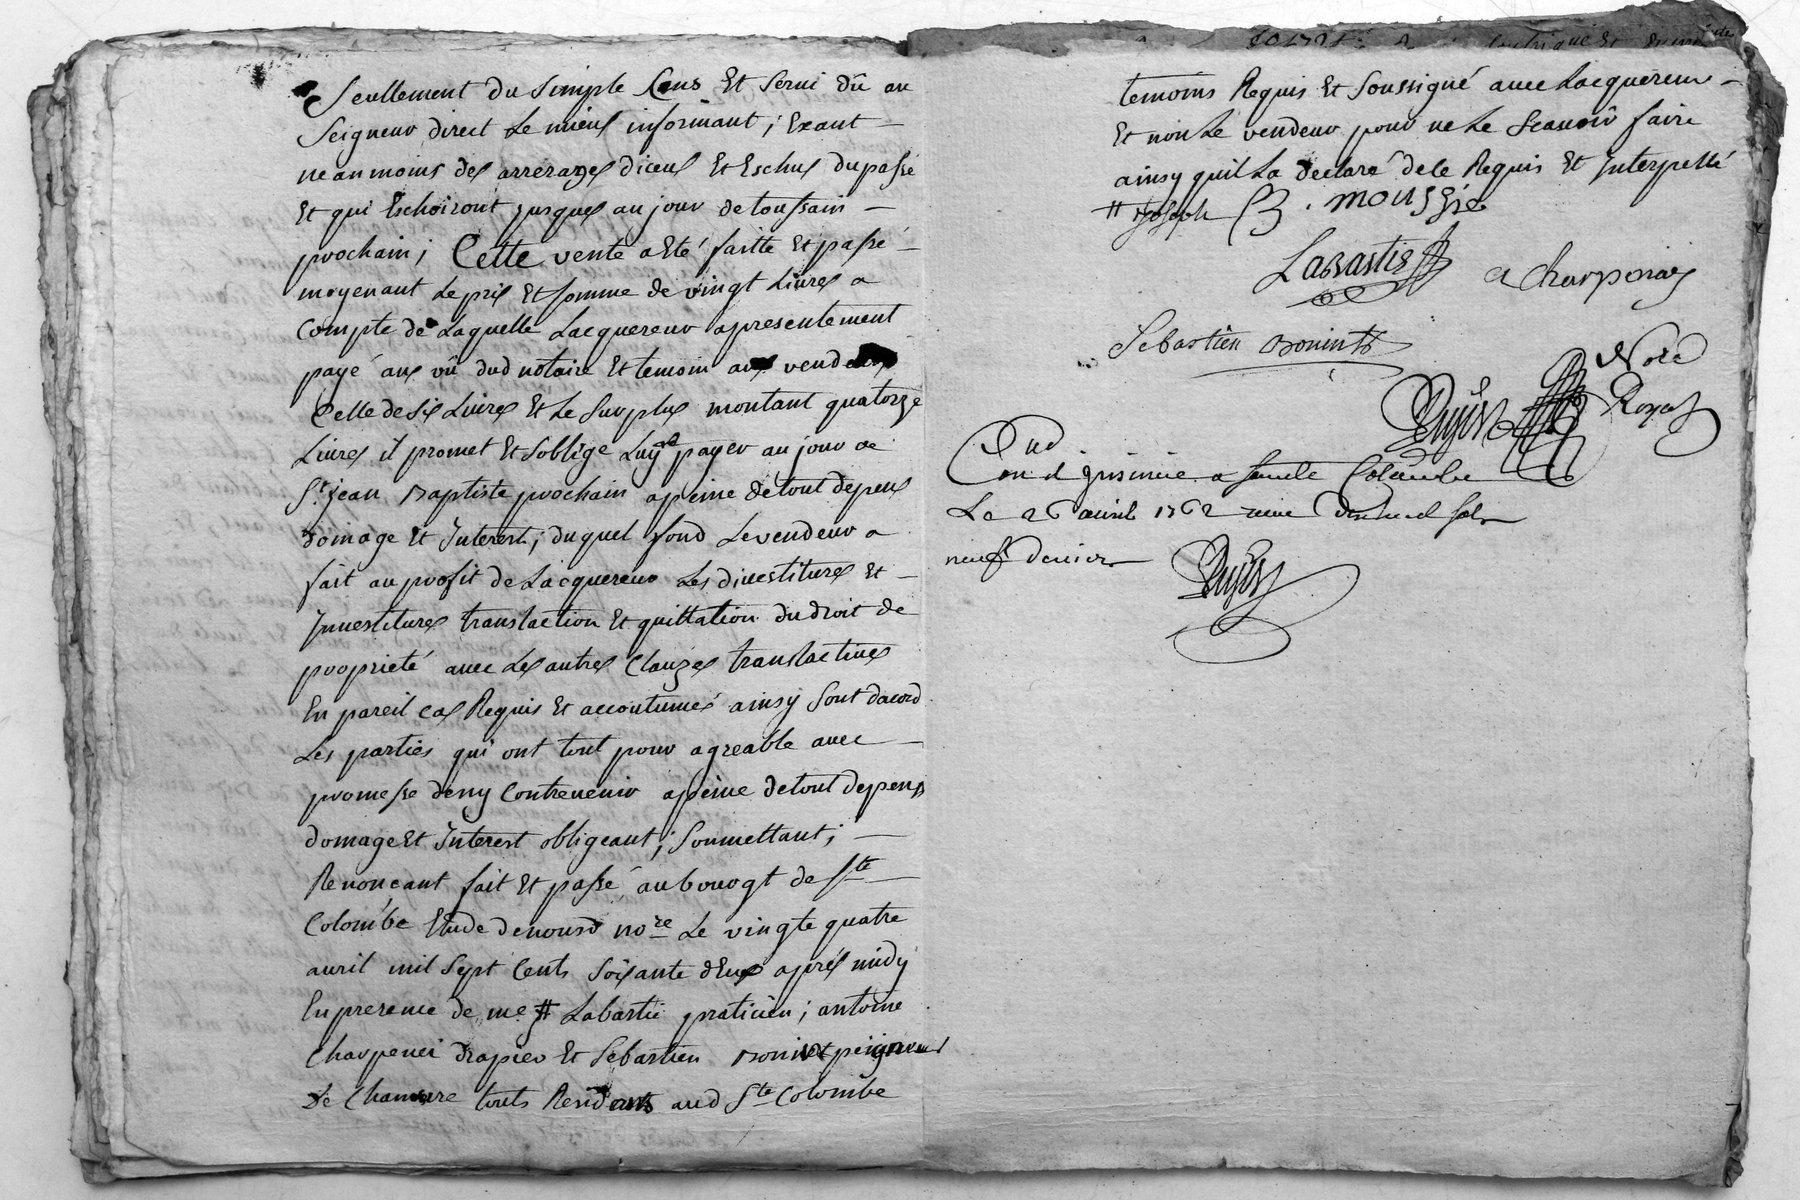 Seullement du simple Cens Et Servi dû au
Seigneur direct Le mieux informant; Exant
neanmoins des arrerages diceux Et Eschus du passé
Et qui Eschoiront jusques au jour de toussain
prochain; Cette vente a Eté faitte Et passé
moyenant Le prix Et somme de vingt Livres a
Compte de Laquelle Lacquereur apresentement
payé aux vû dud notaire Et temoin aux vendeur
Celle de six Livres Et Le surplus montant quatorze
Livres il promet Et soblige Luy payer au jour de
St jean Baptiste prochain apeine de tout depens
domage Et Interest; duquel fond Le vendeur a
fait au profit de Lacquereur Les divestitures Et
Investitures translaction Et quittation du droit de
proprieté avec Les autres Clauzes translactives
En pareil cas Requis Et accoutumés ainsy sont dacord
Les parties qui ont tout pour agreable avec
promesse deny Contrevenir apeine de tout depens
domage Et Interest obligeant; soumettant;
Renoncant fait Et passé au bourgt de Ste
Colombe Etude de nousd nore Le vingte quatre
avril mil sept Cents soixante deux aprés midy
En presence de me # Labastie praticien; antoine
Charpenei drapier Et Sebastien Boninet peigneur
De Chanvre touts Residants aud Ste Colombe
temoins Requis Et soussigné avec Lacquereur
Et non Le vendeur pour ne Le scavoir faire
ainsy quil La declaré de ce Requis Et Interpellé
# joseph B. moussié
Labastie
a Charpenay
Sebastien Boninet
Nore
Royal
Cond
Le 26 avril 1762
neuf deniers